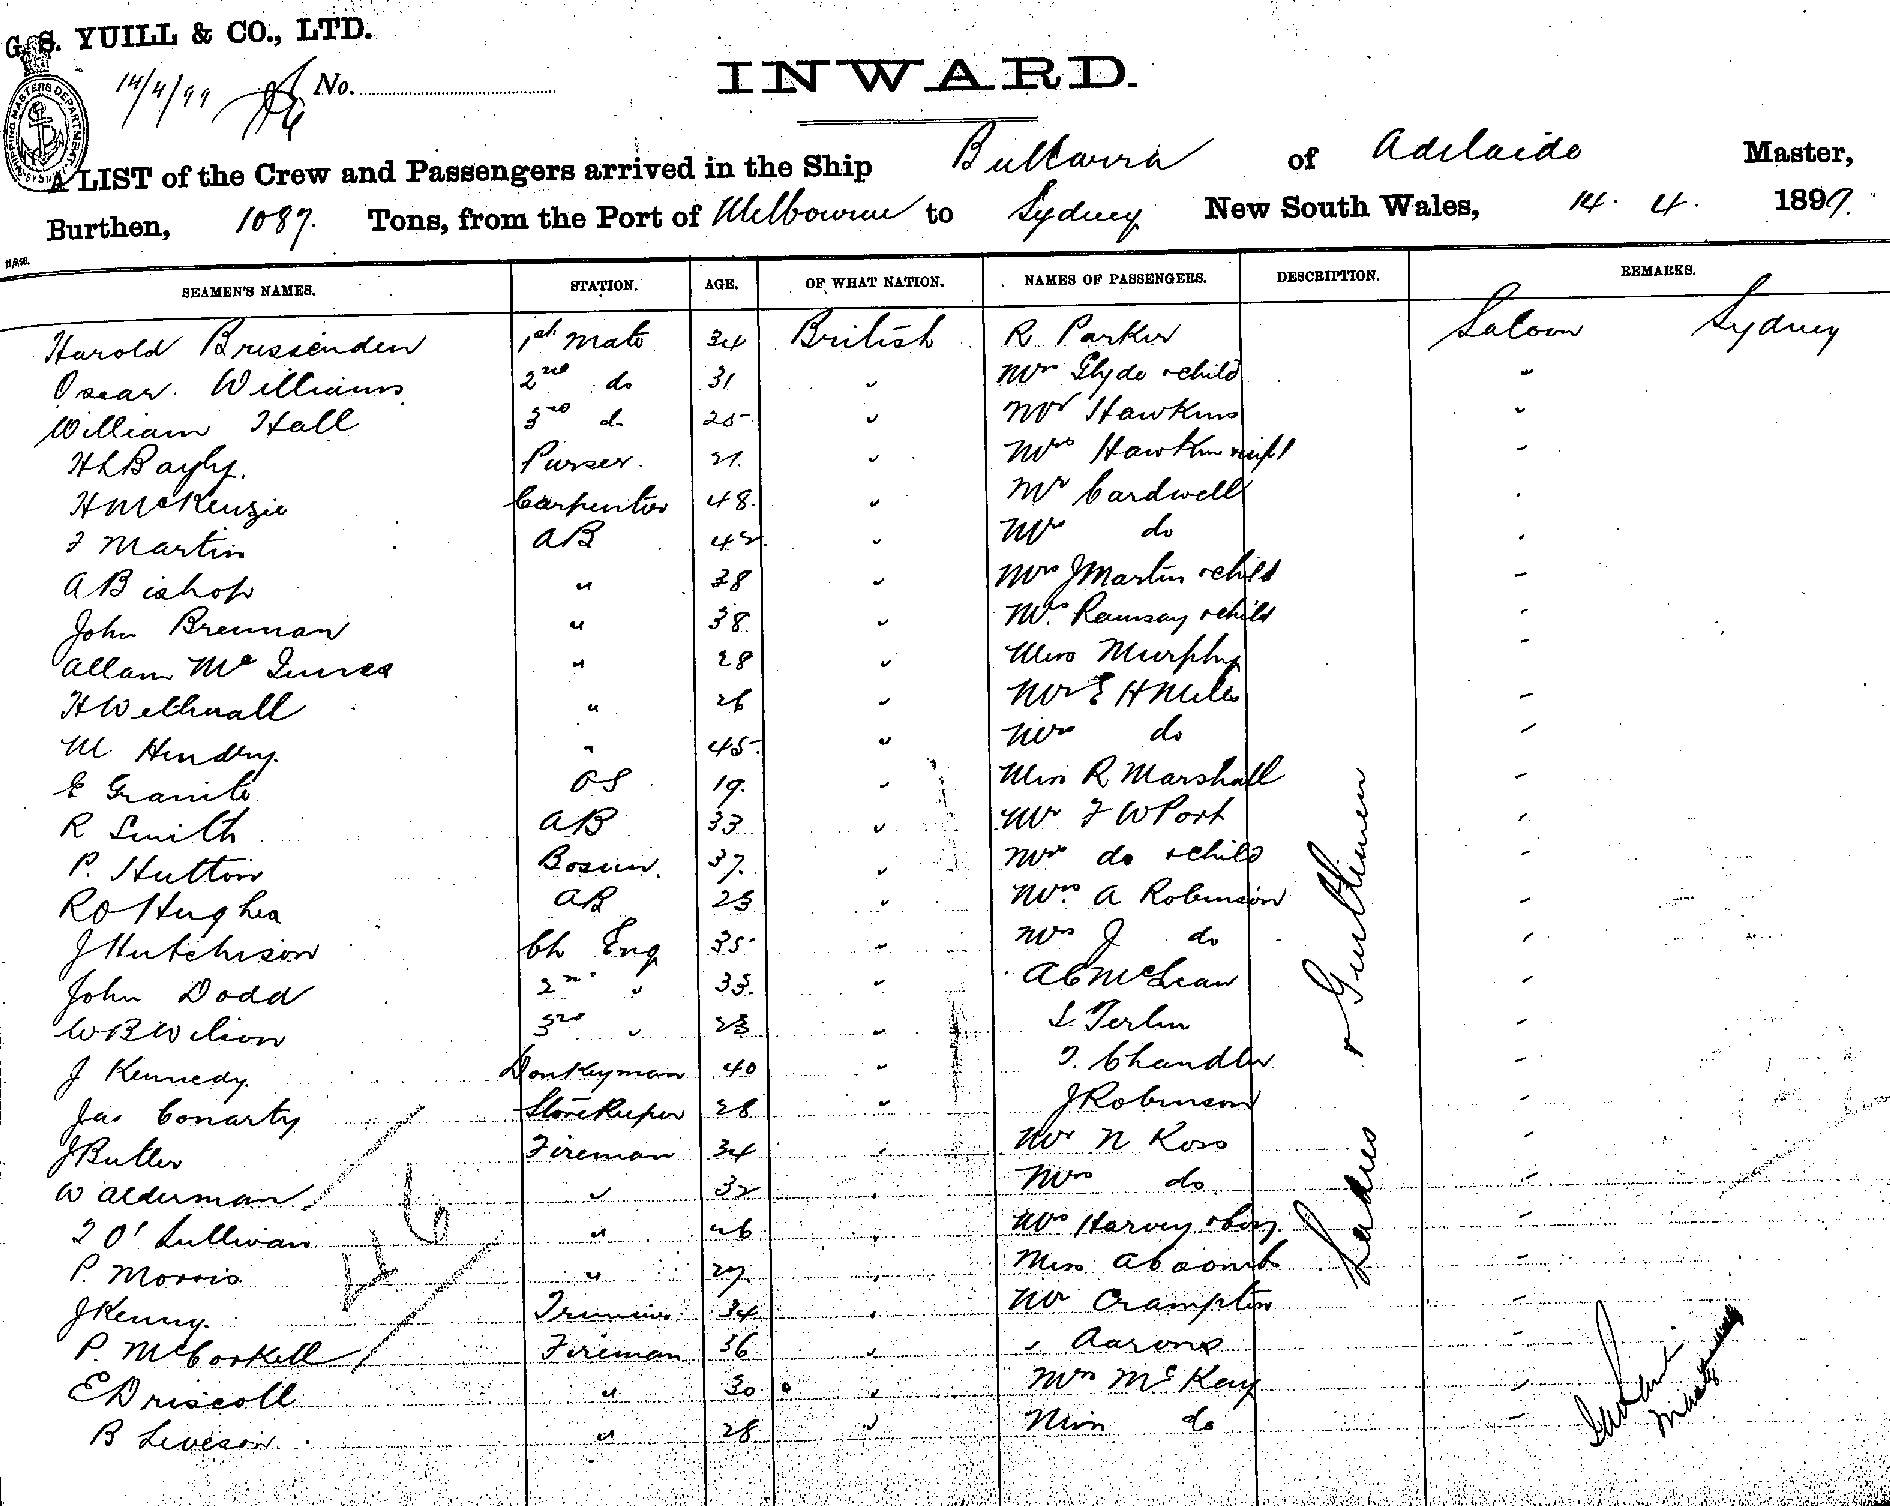 G. S. YUILL & CO., LTD.
14/4/99 No.
INWARD.
SHIPPING MASTERS DEPARTMENT SYDNEY
A LIST of the Crew and Passengers arrived in the Ship Bultarra of Adelaide Master,
Burthen, 1087. Tons, from the Port of Melbourne to Sydney New South Wales, 14. 4. 1899.
SEAMEN'S NAMES. STATION. AGE. OF WHAT NATION. NAMES OF PASSENGERS. DESCRIPTION. REMARKS.
Harold Brissenden 1st Mate 34 British R Parker Saloon Sydney
Oscar Williams 2nd do 31 " Mrs Glyde & child "
William Hall 3rd do 25 " Mr Hawkins "
H L Bayly. Purser. 21. " Mrs Hawkins "
H McKenzie Carpenter 48. " Mr Cardwell "
J Martin AB 42 " Mrs do "
A Bishop " 38 " Mrs J Martin & child "
John Brennan " 38 " Mrs Ramsay & child "
Allam Mc Innes " 28 " Miss Murphy "
H Wethnall " 26 " Mr E H Miles "
M Hendry. " 45 " Mrs do "
E Granite OS 19. " Miss R Marshall "
R Smith AB 33 " Mr F W Port "
P. Hutton Bosun. 37. " Mrs do & child "
R O Hughes AB 23 " Mrs. A Robinson "
J Hutchison Ch Eng 35 " Mrs J do "
John Dodd 2nd " 33. " A C McLean "
W B Wilson 3rd " 23 " S. Terlin "
J Kennedy. Donkeyman 40 " T. Chandler "
Jas Conarty Storekeeper 28 " J Robinson "
J Butler Fireman 34 " Mr N Ross "
W Alderman " 32 " Mrs do "
T O'Sullivan " 26 " Mrs Harvey & boy. "
P. Morris " 27. " Miss "
J Kenny. Trimmer 34 " Mr Crampton "
P. McCorkell Fireman 36 " " Aarons "
E Driscoll " 30 " Mrs McKay "
B Leveson " 28 " Miss do "
Ladies & Gentlemen
46
Master